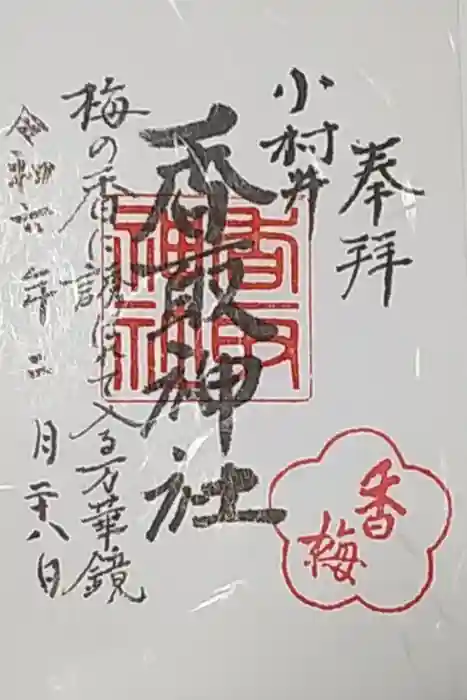 奉拝
小村井
香取神社
香取神社
梅の香に誘はれて入る万華鏡
令和六年二月二十八日
香梅